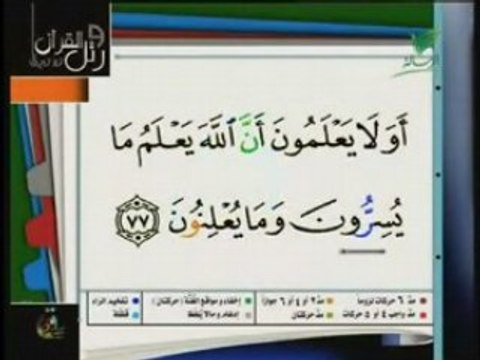 ورتل القرآن ترتيلا
الرسالة
أَوَلَا يَعْلَمُونَ أَنَّ ٱللَّهَ يَعْلَمُ مَا
يُسِرُّونَ وَمَا يُعْلِنُونَ ٧٧
مدّ ٦ حركات لزوماً
مدّ ٢ أو ٤ أو ٦ جوازاً
إخفاء ومواقع الغنّة (حركتان)
تفخيم الراء
مدّ واجب ٤ أو ٥ حركات
مدّ حركتان
إدغام وما لا يُلفظ
قلقلة